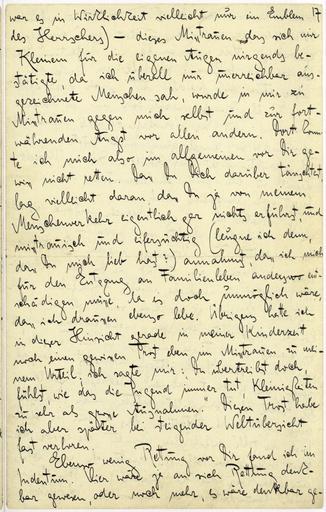 war es in Wirklichkeit vielleicht nur ein Emblem 17
des Herrschers) — dieses Misstrauen, das sich mir
Kleinem für die eigenen Augen nirgends be-
stätigte, da ich überall nur unerreichbar aus-
gezeichnete Menschen sah, wurde in mir zu
Misstrauen gegen mich selbst und zur fort-
währenden Angst vor allem andern. Dort konn-
te ich mich also im allgemeinen vor Dir ge-
wiss nicht retten. Dass Du Dich darüber täuschtest
lag vielleicht daran, dass Du ja von meinem
Menschenverkehr eigentlich gar nichts erfuhrst und
misstrauisch und eifersüchtig (leugne ich denn,
dass Du mich lieb hast?) annahmst, dass ich mich
für den Entgang an Familienleben anderswo ent-
schädigen müsse, da es doch unmöglich wäre,
dass ich draussen ebenso lebe. Übrigens hatte ich
in dieser Hinsicht gerade in meiner Kinderzeit
noch einen gewissen Trost eben im Misstrauen zu mei-
nem Urteil; ich sagte mir: „Du übertreibst doch,
fühlst, wie das die Jugend immer tut, Kleinigkeiten
zu sehr als grosse Ausnahmen." Diesen Trost habe
ich aber später bei steigender Weltübersicht
fast verloren.
Ebenso wenig Rettung vor Dir fand ich im
Judentum. Hier wäre ja an sich Rettung denk-
bar gewesen, oder noch mehr, es wäre denkbar ge-